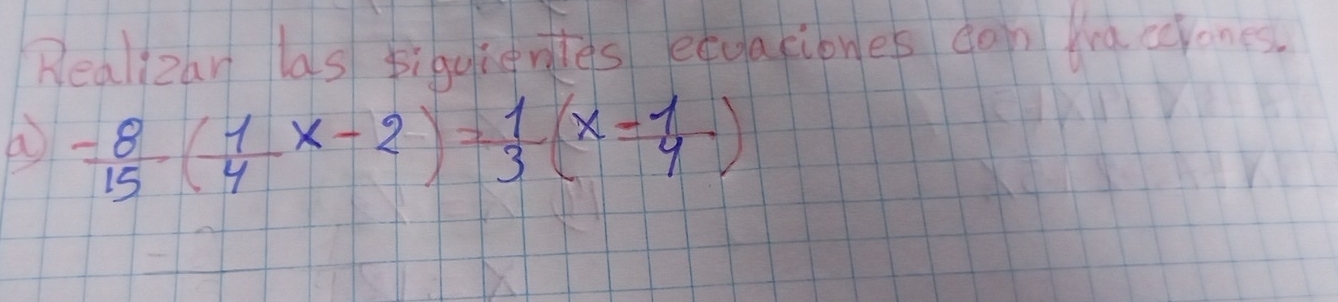 Realizar las siguientes ecuaciones con fracciones.
a) -8/15 (1/4 x - 2) = 1/3 (x - 1/4)